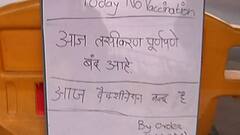 Today No Vaccination
आज लसीकरण पूर्णपणे
बंद आहे.
आज वैक्सीनेशन बन्द है
By Order